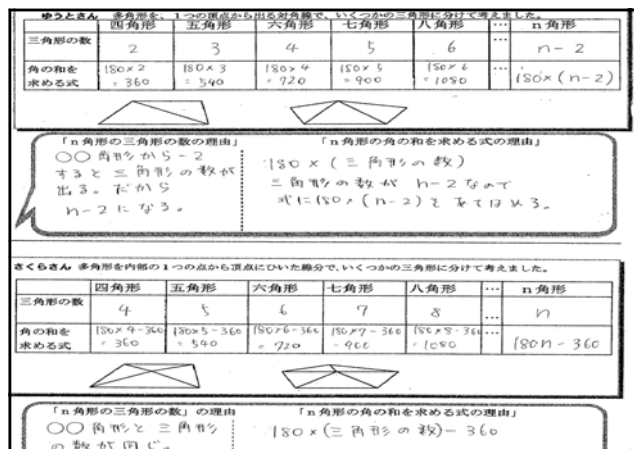 ゆうとさん 多角形を、1つの頂点から出る対角線で、いくつかの三角形に分けて考えました。
四角形 五角形 六角形 七角形 八角形 … n角形
三角形の数 2 3 4 5 6 … n-2
角の和を求める式 180×2=360 180×3=540 180×4=720 180×5=900 180×6=1080 … 180×(n-2)
「n角形の三角形の数の理由」
○○角形から-2
すると三角形の数が
出る。だから
n-2になる。
「n角形の角の和を求める式の理由」
180×(三角形の数)
三角形の数が n-2なので
式に180×(n-2)とあてはめる。
さくらさん 多角形を内部の1つの点から頂点にひいた線分で、いくつかの三角形に分けて考えました。
四角形 五角形 六角形 七角形 八角形 … n角形
三角形の数 4 5 6 7 8 … n
角の和を求める式 180×4-360=360 180×5-360=540 180×6-360=720 180×7-360=900 180×8-360=1080 … 180n-360
「n角形の三角形の数」の理由
○○角形と三角形
の数が同じ。
「n角形の角の和を求める式の理由」
180×(三角形の数)-360